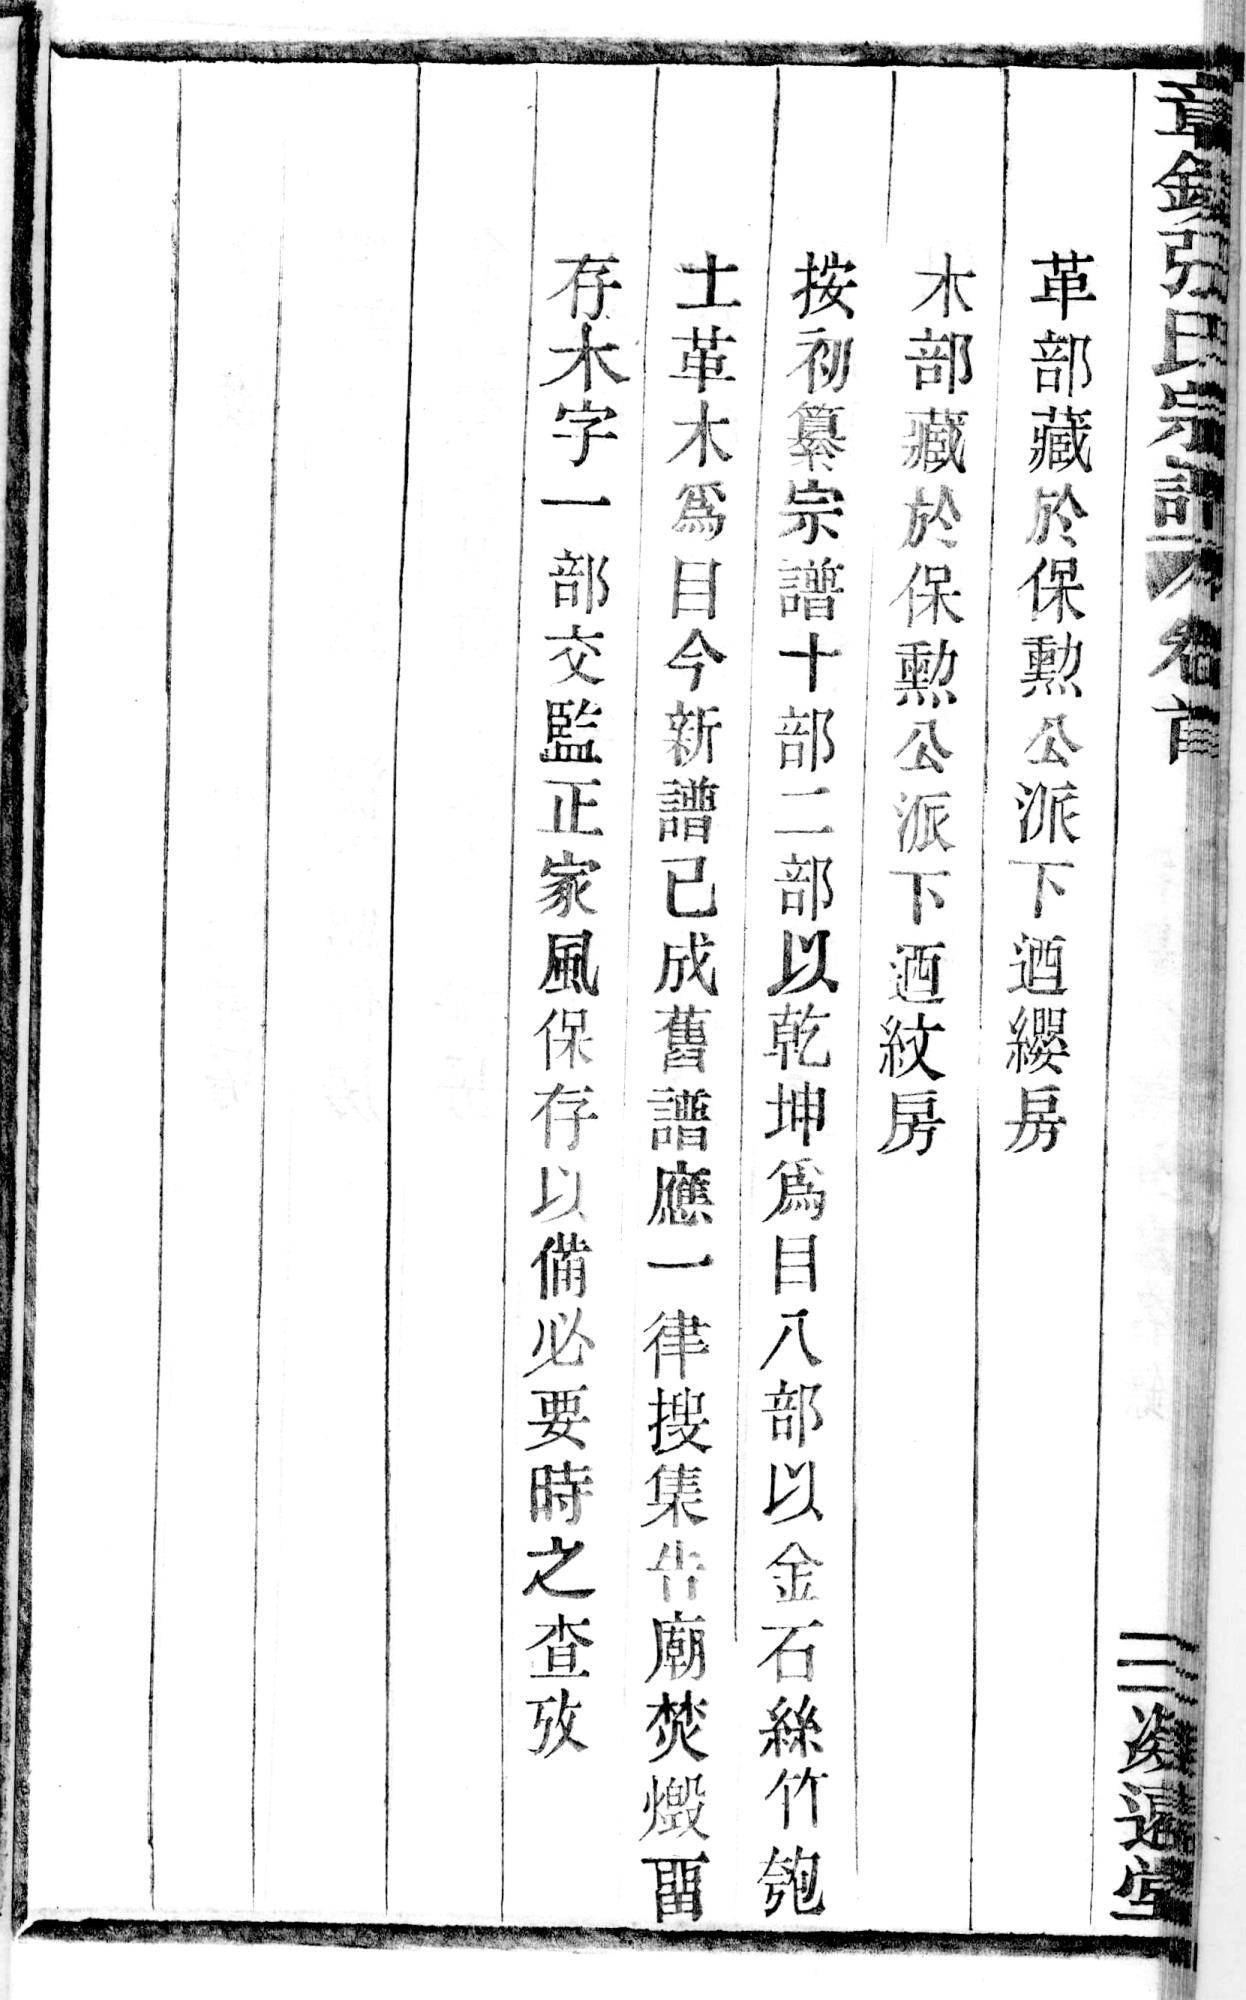 張氏宗譜 卷首
革部藏於保勲公派下迺纓房
木部藏於保勲公派下迺紋房
按初纂宗譜十部二部以乾坤爲目八部以金石絲竹匏
土革木爲目今新譜已成舊譜應一律搜集告廟焚燬畱
存木字一部交監正家風保存以備必要時之查攷